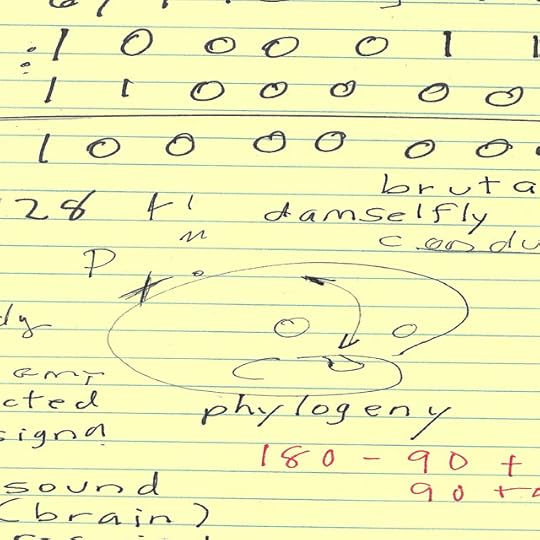 1 0 0 0 0 1 1
1 1 0 0 0 0 0
1 0 0 0 0 0 0
bruta
128
damselfly
condu
P
dy
cted
signa
phylogeny
180 - 90 +
90 +
sound
(brain)